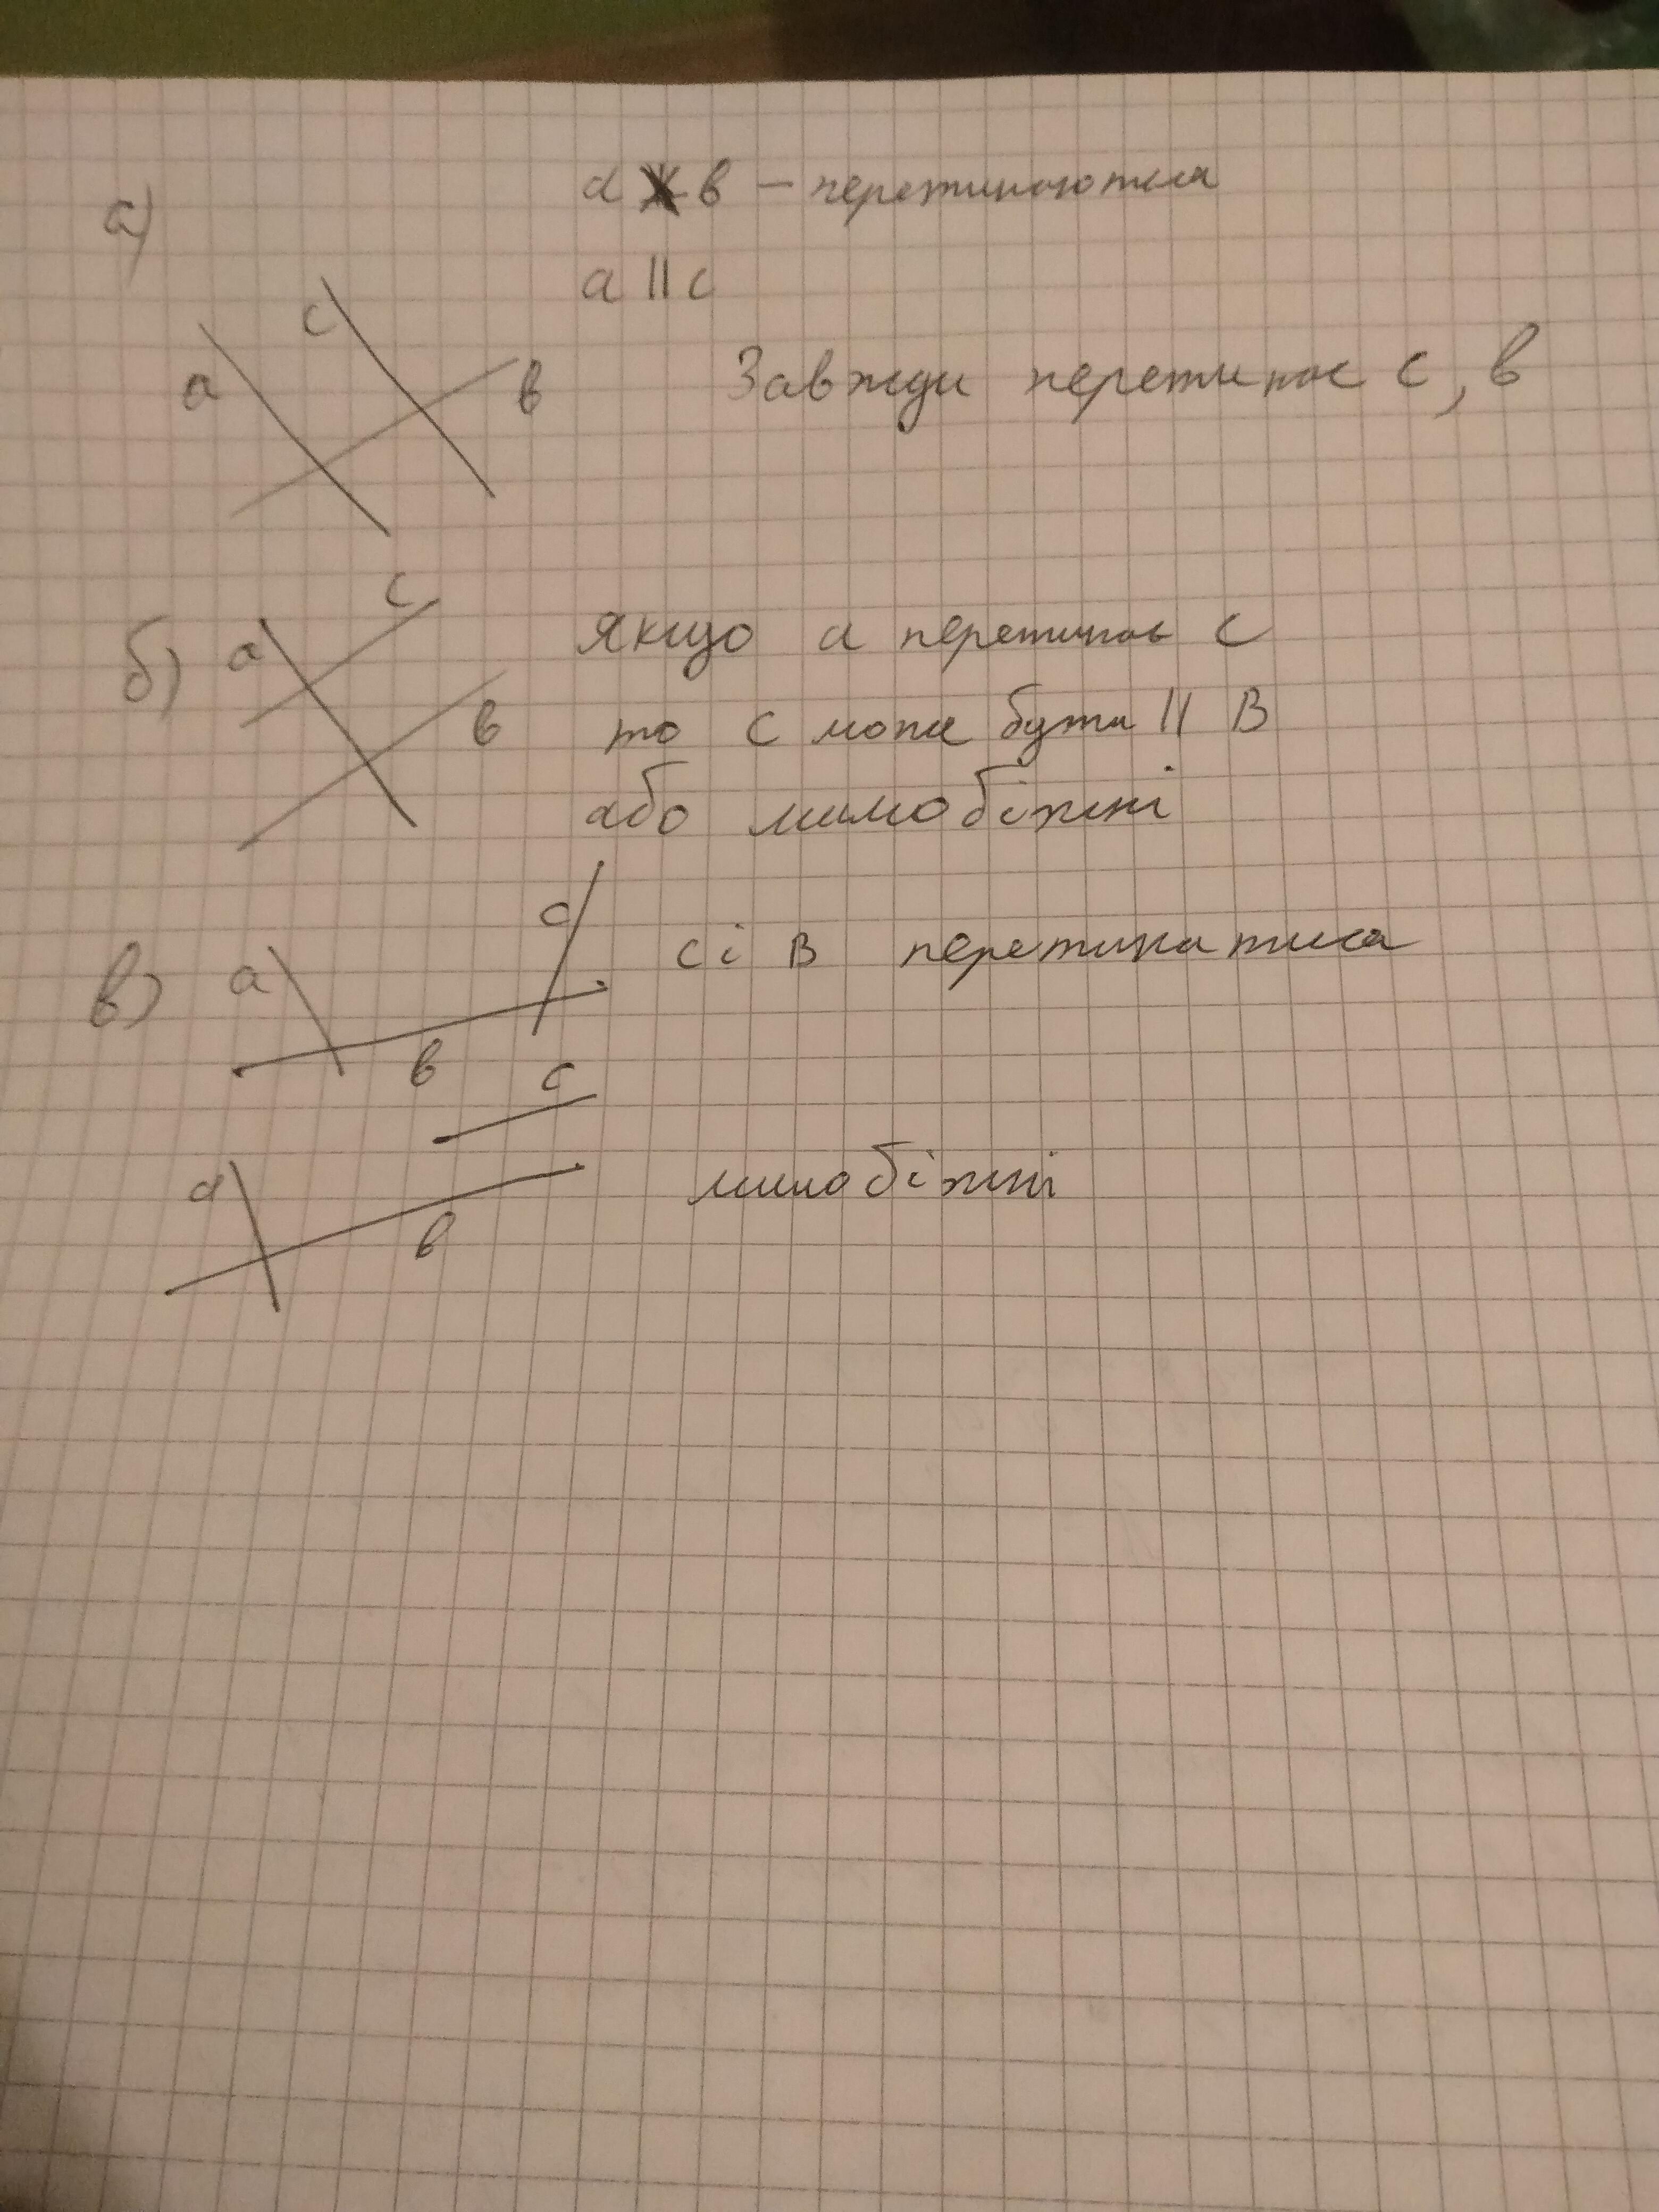 а)
а в — перетинаються
a || c
с
а
в
Завжди перетинає с, в
с
б) а
в
Якщо а перетинає с
то с може бути || В
або мимобіжні
с
в) а
в
с і В перетинатися
с
а
в
мимобіжні